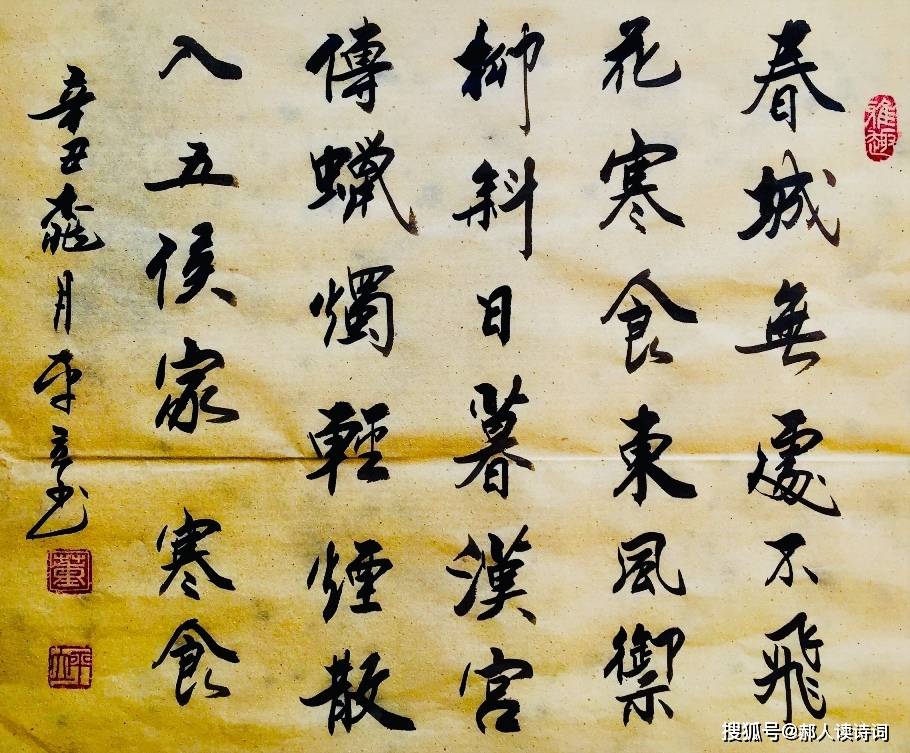 雅趣
春城無處不飛
花寒食東風御
柳斜日暮漢宮
傳蠟燭輕煙散
入五侯家 寒食
辛丑月平书
董
搜狐号@郝人读诗词